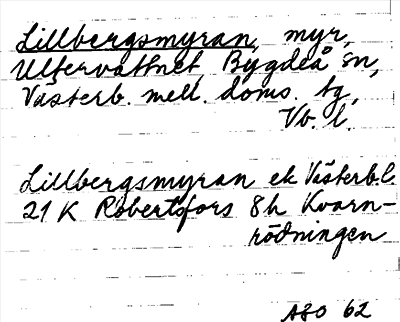 Lillbergsmyran, myr,
Ultervattnet, Bygdeå sn,
Västerb. mell. doms. tg,
Vb. l.
Lillbergsmyran ek Västerb.l.
21 K Robertsfors 8h Kvarn-
rödningen
ASO 62